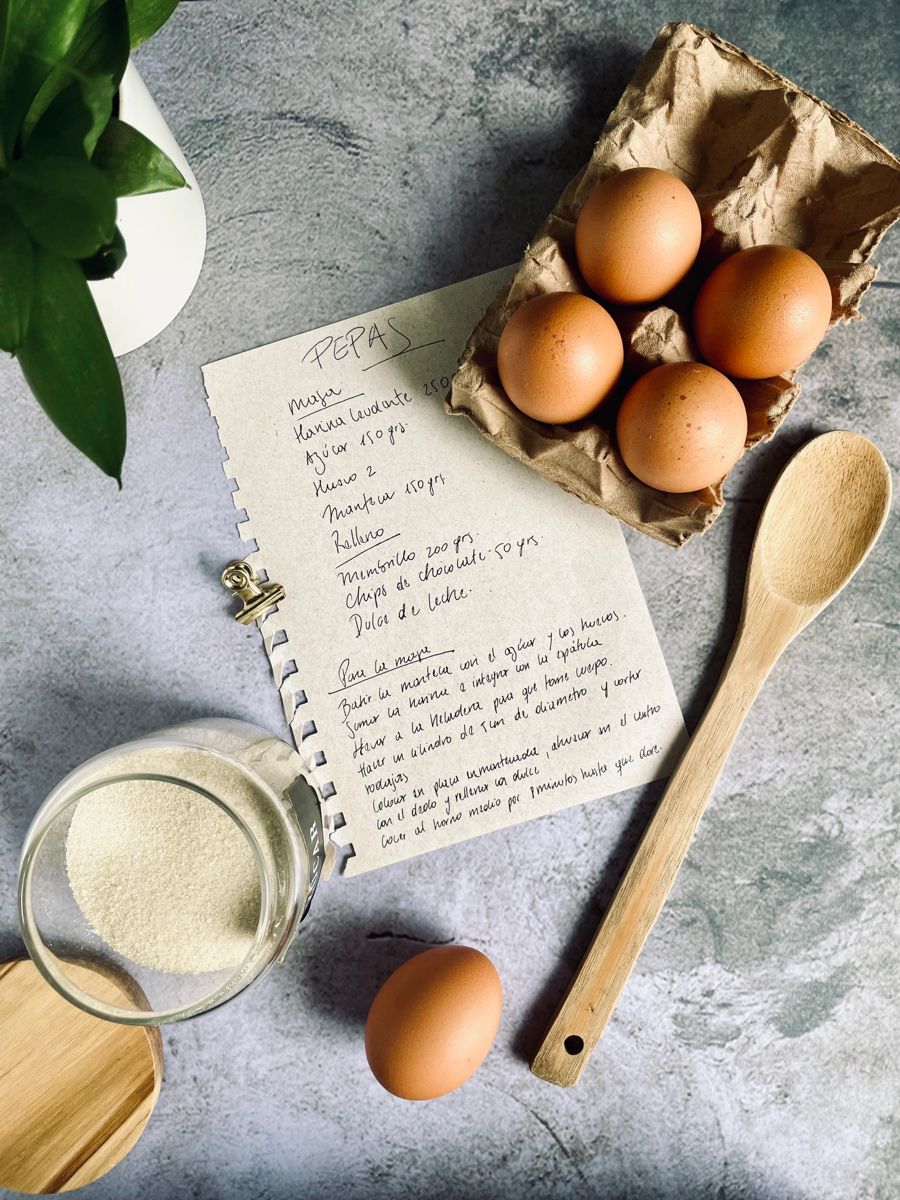 PEPAS
masa
Harina leudante 250
Azúcar 150 grs.
Huevo 2
Manteca 150 grs
Relleno
Membrillo 200 grs.
Chips de chocolate - 50 grs.
Dulce de leche.
Para la masa
Batir la manteca con el azúcar y los huevos.
Sumar la harina e integrar con la espátula
Llevar a la heladera para que tome cuerpo.
Hacer un cilindro de 5cm de diámetro y cortar
rodajas
Colocar en placa enmantecada, ahuecar en el centro
con el dedo y rellenar con dulce
Cocer al horno medio por 8 minutos hasta que dore.
CAR